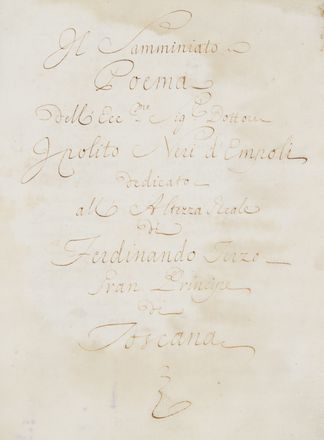 Il Samminiato
Poema
Dell Ecc.mo Sig.r Dottore
Ipolito Neri d'Empoli
dedicato
all Altezza Reale
di
Ferdinando Terzo
Gran Principe
di
Toscana